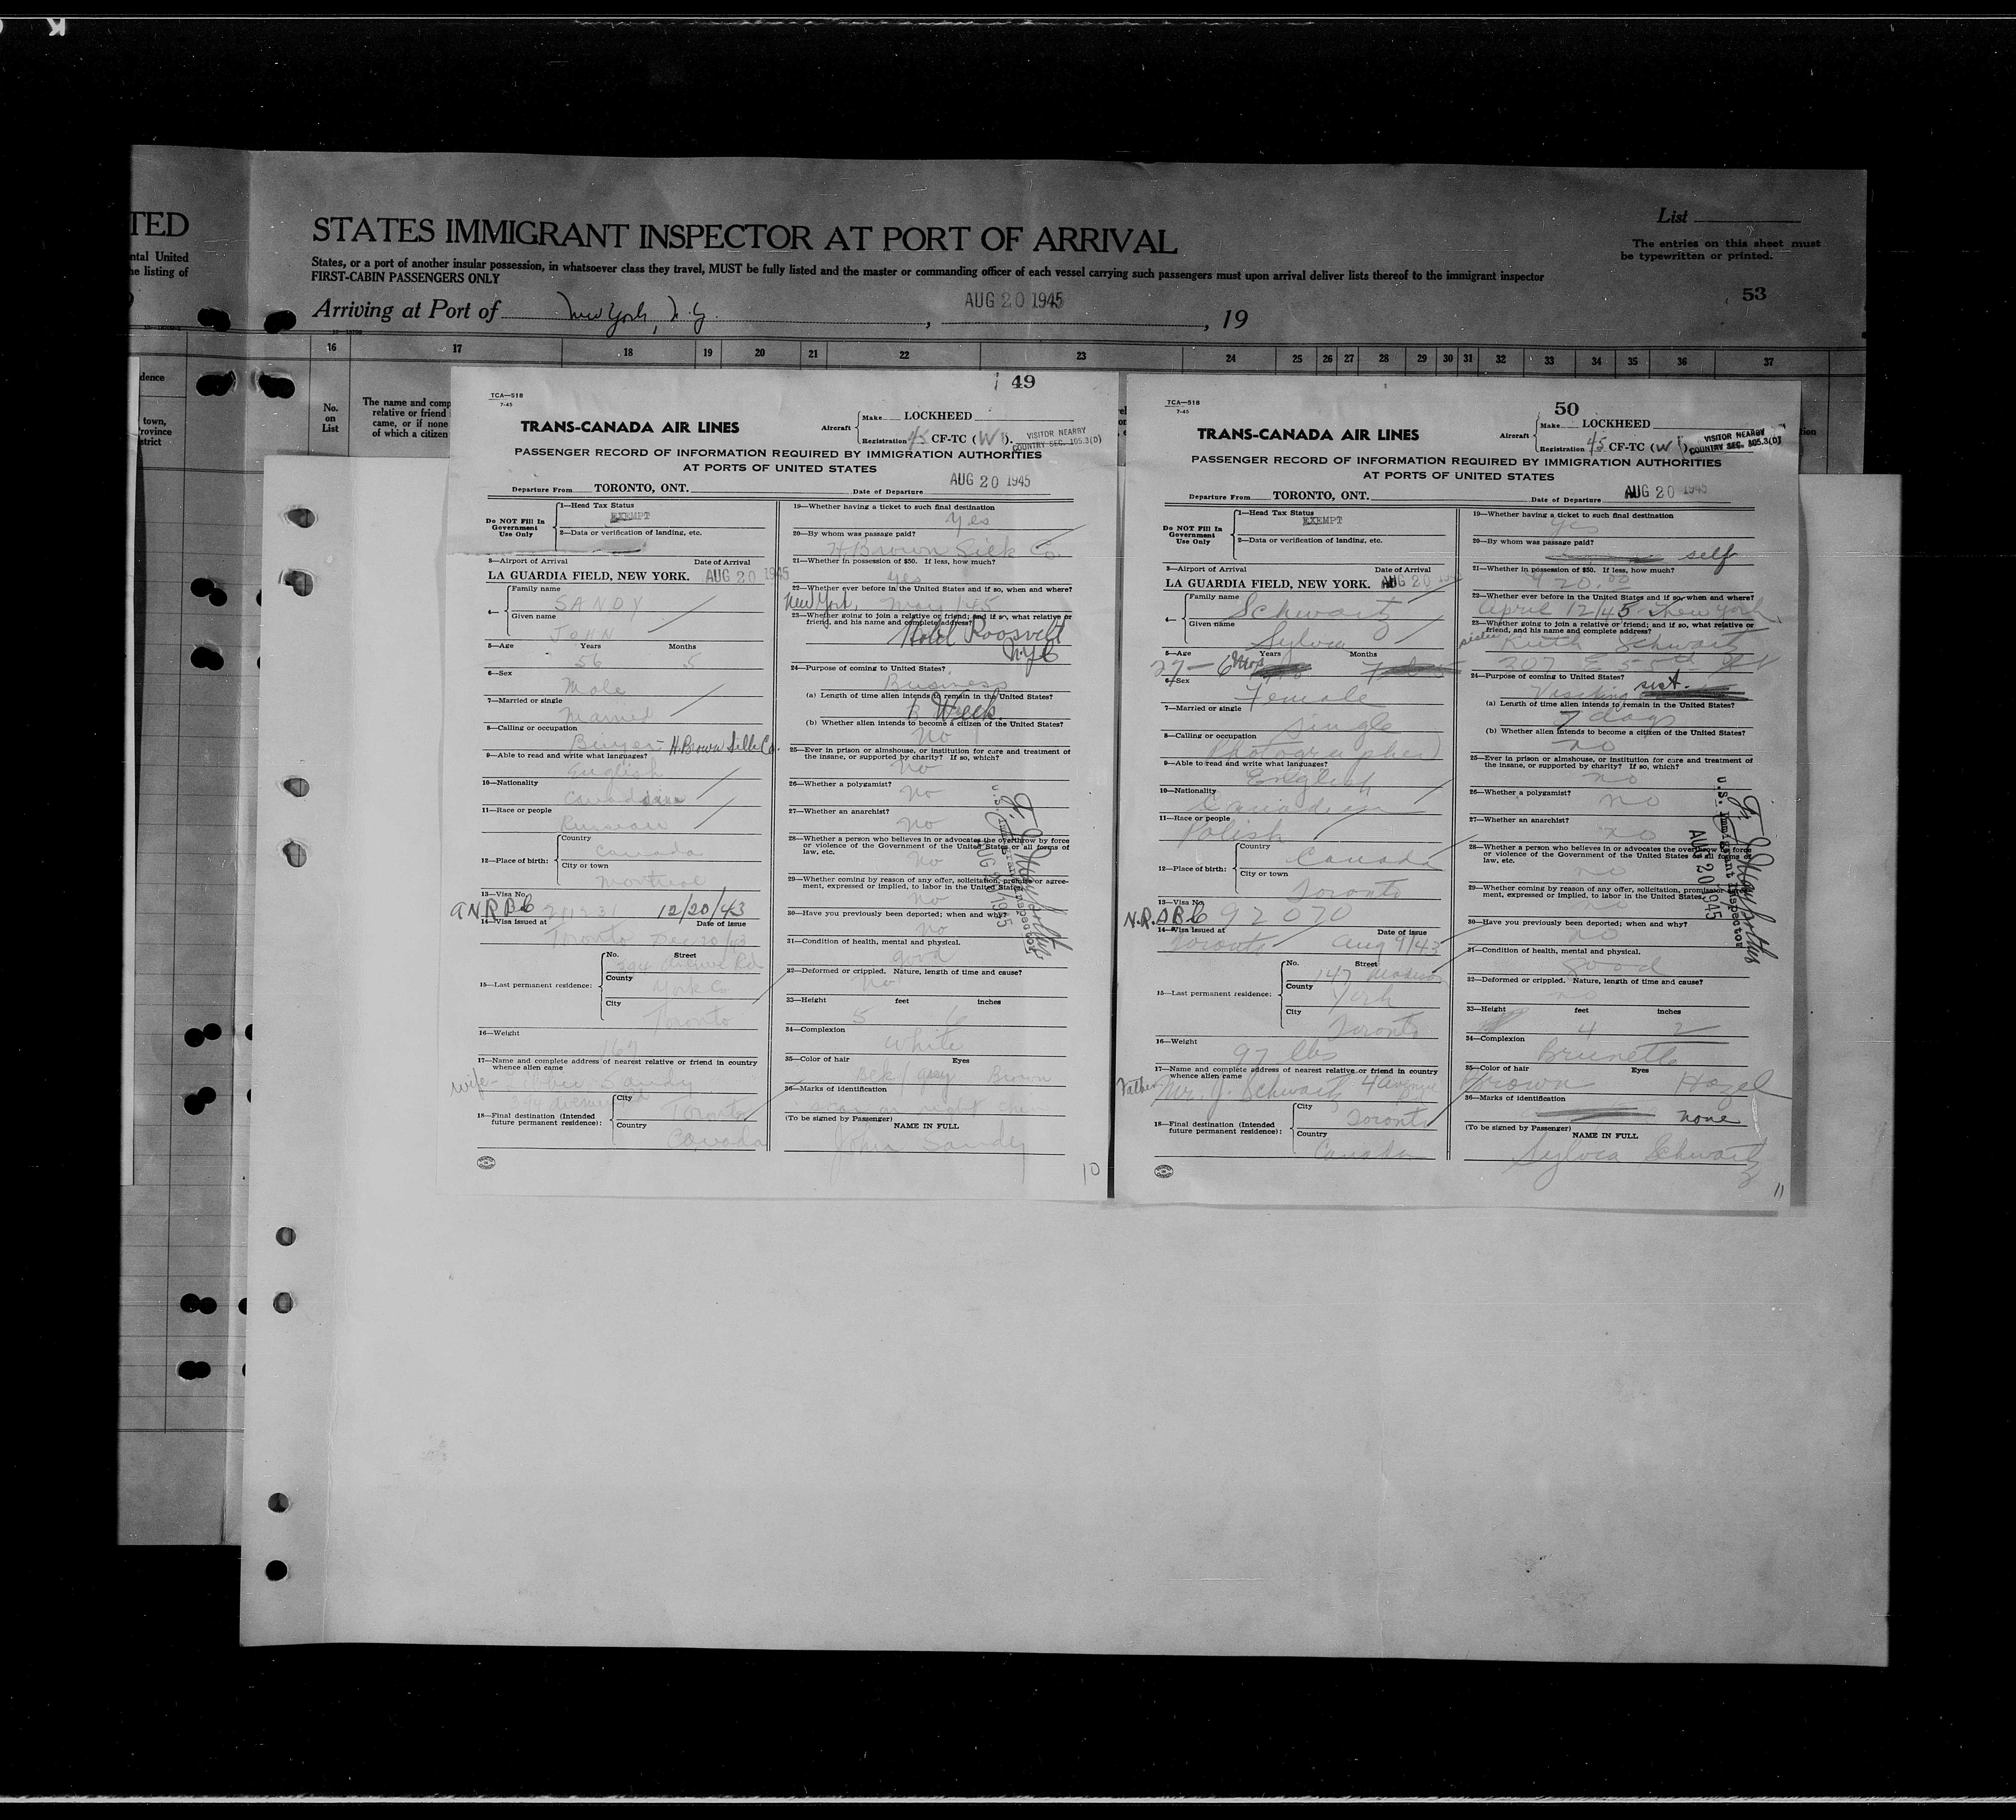 TED
ntal United
he listing of
STATES IMMIGRANT INSPECTOR AT PORT OF ARRIVAL
States, or a port of another insular possession, in whatsoever class they travel, MUST be fully listed and the master or commanding officer of each vessel carrying such passengers must upon arrival deliver lists thereof to the immigrant inspector
FIRST-CABIN PASSENGERS ONLY
List
The entries on this sheet must
be typewritten or printed.
53
Arriving at Port of New York, N.Y. , AUG 20 1945 , 19
16 17 18 19 20 21 22 23 24 25 26 27 28 29 30 31 32 33 34 35 36 37
dence
town,
rovince
strict
No.
on
List
The name and comp
relative or friend
came, or if none
of which a citizen
49
TCA—518
7-45
TRANS-CANADA AIR LINES
Aircraft
Make LOCKHEED
Registration 45 CF-TC (W).
VISITOR NEARBY
COUNTRY SEC. 105.3(D)
PASSENGER RECORD OF INFORMATION REQUIRED BY IMMIGRATION AUTHORITIES
AT PORTS OF UNITED STATES
Departure From TORONTO, ONT. Date of Departure AUG 20 1945
Do NOT Fill In
Government
Use Only
1—Head Tax Status
EXEMPT
2—Data or verification of landing, etc.
3—Airport of Arrival Date of Arrival
LA GUARDIA FIELD, NEW YORK. AUG 20 1945
4—
Family name
SANDY
Given name
JOHN
5—Age Years Months
56 5
6—Sex
Male
7—Married or single
Married
8—Calling or occupation
Buyer - H. Brown Silk Co.
9—Able to read and write what languages?
English
10—Nationality
Canadian
11—Race or people
Russian
12—Place of birth:
Country
Canada
City or town
Montreal
13—Visa No.
12/20/43
14—Visa issued at Date of issue
Toronto Dec 20/43
15—Last permanent residence:
No. Street
394 Avenue Rd
County
York Co
City
Toronto
16—Weight
167
17—Name and complete address of nearest relative or friend in country
whence alien came
wife - Sandy
394 Avenue Rd
18—Final destination (Intended
future permanent residence):
City
Toronto
Country
Canada
19—Whether having a ticket to such final destination
Yes
20—By whom was passage paid?
H. Brown Silk Co.
21—Whether in possession of $50. If less, how much?
Yes
22—Whether ever before in the United States and if so, when and where?
New York, May/45
23—Whether going to join a relative or friend; and if so, what relative or
friend, and his name and complete address?
Hotel Roosvelt
NYC
24—Purpose of coming to United States?
Business
(a) Length of time alien intends to remain in the United States?
Week
(b) Whether alien intends to become a citizen of the United States?
No
25—Ever in prison or almshouse, or institution for care and treatment of
the insane, or supported by charity? If so, which?
No
26—Whether a polygamist?
No
27—Whether an anarchist?
No
28—Whether a person who believes in or advocates the overthrow by force
or violence of the Government of the United States or all forms of
law, etc.
No
29—Whether coming by reason of any offer, solicitation, promise or agree-
ment, expressed or implied, to labor in the United States
No
30—Have you previously been deported; when and why?
No
31—Condition of health, mental and physical.
Good
32—Deformed or crippled. Nature, length of time and cause?
No
33—Height feet inches
5 6
34—Complexion
White
35—Color of hair Eyes
Blk/gray Brown
36—Marks of identification
(To be signed by Passenger)
NAME IN FULL
John Sandy
U.S. Immigrant Inspector
10
50
TCA—518
7-45
TRANS-CANADA AIR LINES
Aircraft
Make LOCKHEED
Registration 45 CF-TC (W)
VISITOR NEARBY
COUNTRY SEC. 105.3(D)
PASSENGER RECORD OF INFORMATION REQUIRED BY IMMIGRATION AUTHORITIES
AT PORTS OF UNITED STATES
Departure From TORONTO, ONT. Date of Departure AUG 20 1945
Do NOT Fill In
Government
Use Only
1—Head Tax Status
EXEMPT
2—Data or verification of landing, etc.
3—Airport of Arrival Date of Arrival
LA GUARDIA FIELD, NEW YORK. AUG 20
4—
Family name
Schwartz
Given name
Sylvia
5—Age Years Months
27 - 6 Mos
6—Sex
Female
7—Married or single
Single
8—Calling or occupation
Photographer
9—Able to read and write what languages?
English
10—Nationality
Canadian
11—Race or people
Polish
12—Place of birth:
Country
Canada
City or town
Toronto
13—Visa No.
92070
14—Visa issued at Date of issue
Toronto Aug 9/43
15—Last permanent residence:
No. Street
147 Madison
County
York
City
Toronto
16—Weight
97 lbs
17—Name and complete address of nearest relative or friend in country
whence alien came
Father Mr. J. Schwartz
18—Final destination (Intended
future permanent residence):
City
Toronto
Country
Canada
19—Whether having a ticket to such final destination
Yes
20—By whom was passage paid?
self
21—Whether in possession of $50. If less, how much?
20.00
22—Whether ever before in the United States and if so, when and where?
April 12/45 New York
23—Whether going to join a relative or friend; and if so, what relative or
friend, and his name and complete address?
sister Ruth Schwartz
207 E 55th St
24—Purpose of coming to United States?
Visiting sist.
(a) Length of time alien intends to remain in the United States?
7 days
(b) Whether alien intends to become a citizen of the United States?
no
25—Ever in prison or almshouse, or institution for care and treatment of
the insane, or supported by charity? If so, which?
no
26—Whether a polygamist?
no
27—Whether an anarchist?
no
28—Whether a person who believes in or advocates the overthrow by force
or violence of the Government of the United States or all forms of
law, etc.
no
29—Whether coming by reason of any offer, solicitation, promise or agree-
ment, expressed or implied, to labor in the United States
no
30—Have you previously been deported; when and why?
no
31—Condition of health, mental and physical.
good
32—Deformed or crippled. Nature, length of time and cause?
no
33—Height feet inches
4 2
34—Complexion
Brunette
35—Color of hair Eyes
Brown Hazel
36—Marks of identification
none
(To be signed by Passenger)
NAME IN FULL
Sylvia Schwartz
U.S. Immigrant Inspector
AUG 20 1945
11